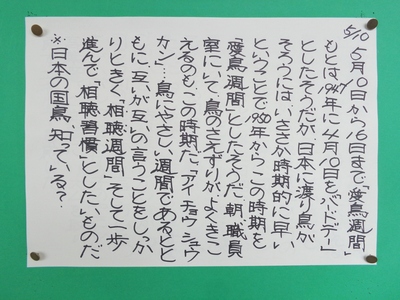 5/10
5月10日から16日まで「愛鳥週間」
もとは1947年に4月10日をバードデー
としたそうだが、日本に渡り鳥が
そろうには、いささか時期的に早い
ということで1950年から、この時期を
「愛鳥週間」としたそうだ。朝、職員
室にいて、鳥のさえずりがよくきこ
えるのも、この時期だ。「アイチョウシュウ
カン」…鳥にやさしい週間であるとと
もに、互いが互いの言うことをしっか
りときく「相聴週間」そして一歩
進んで、「相聴習慣」としたいものだ
※日本の国鳥、知っている?